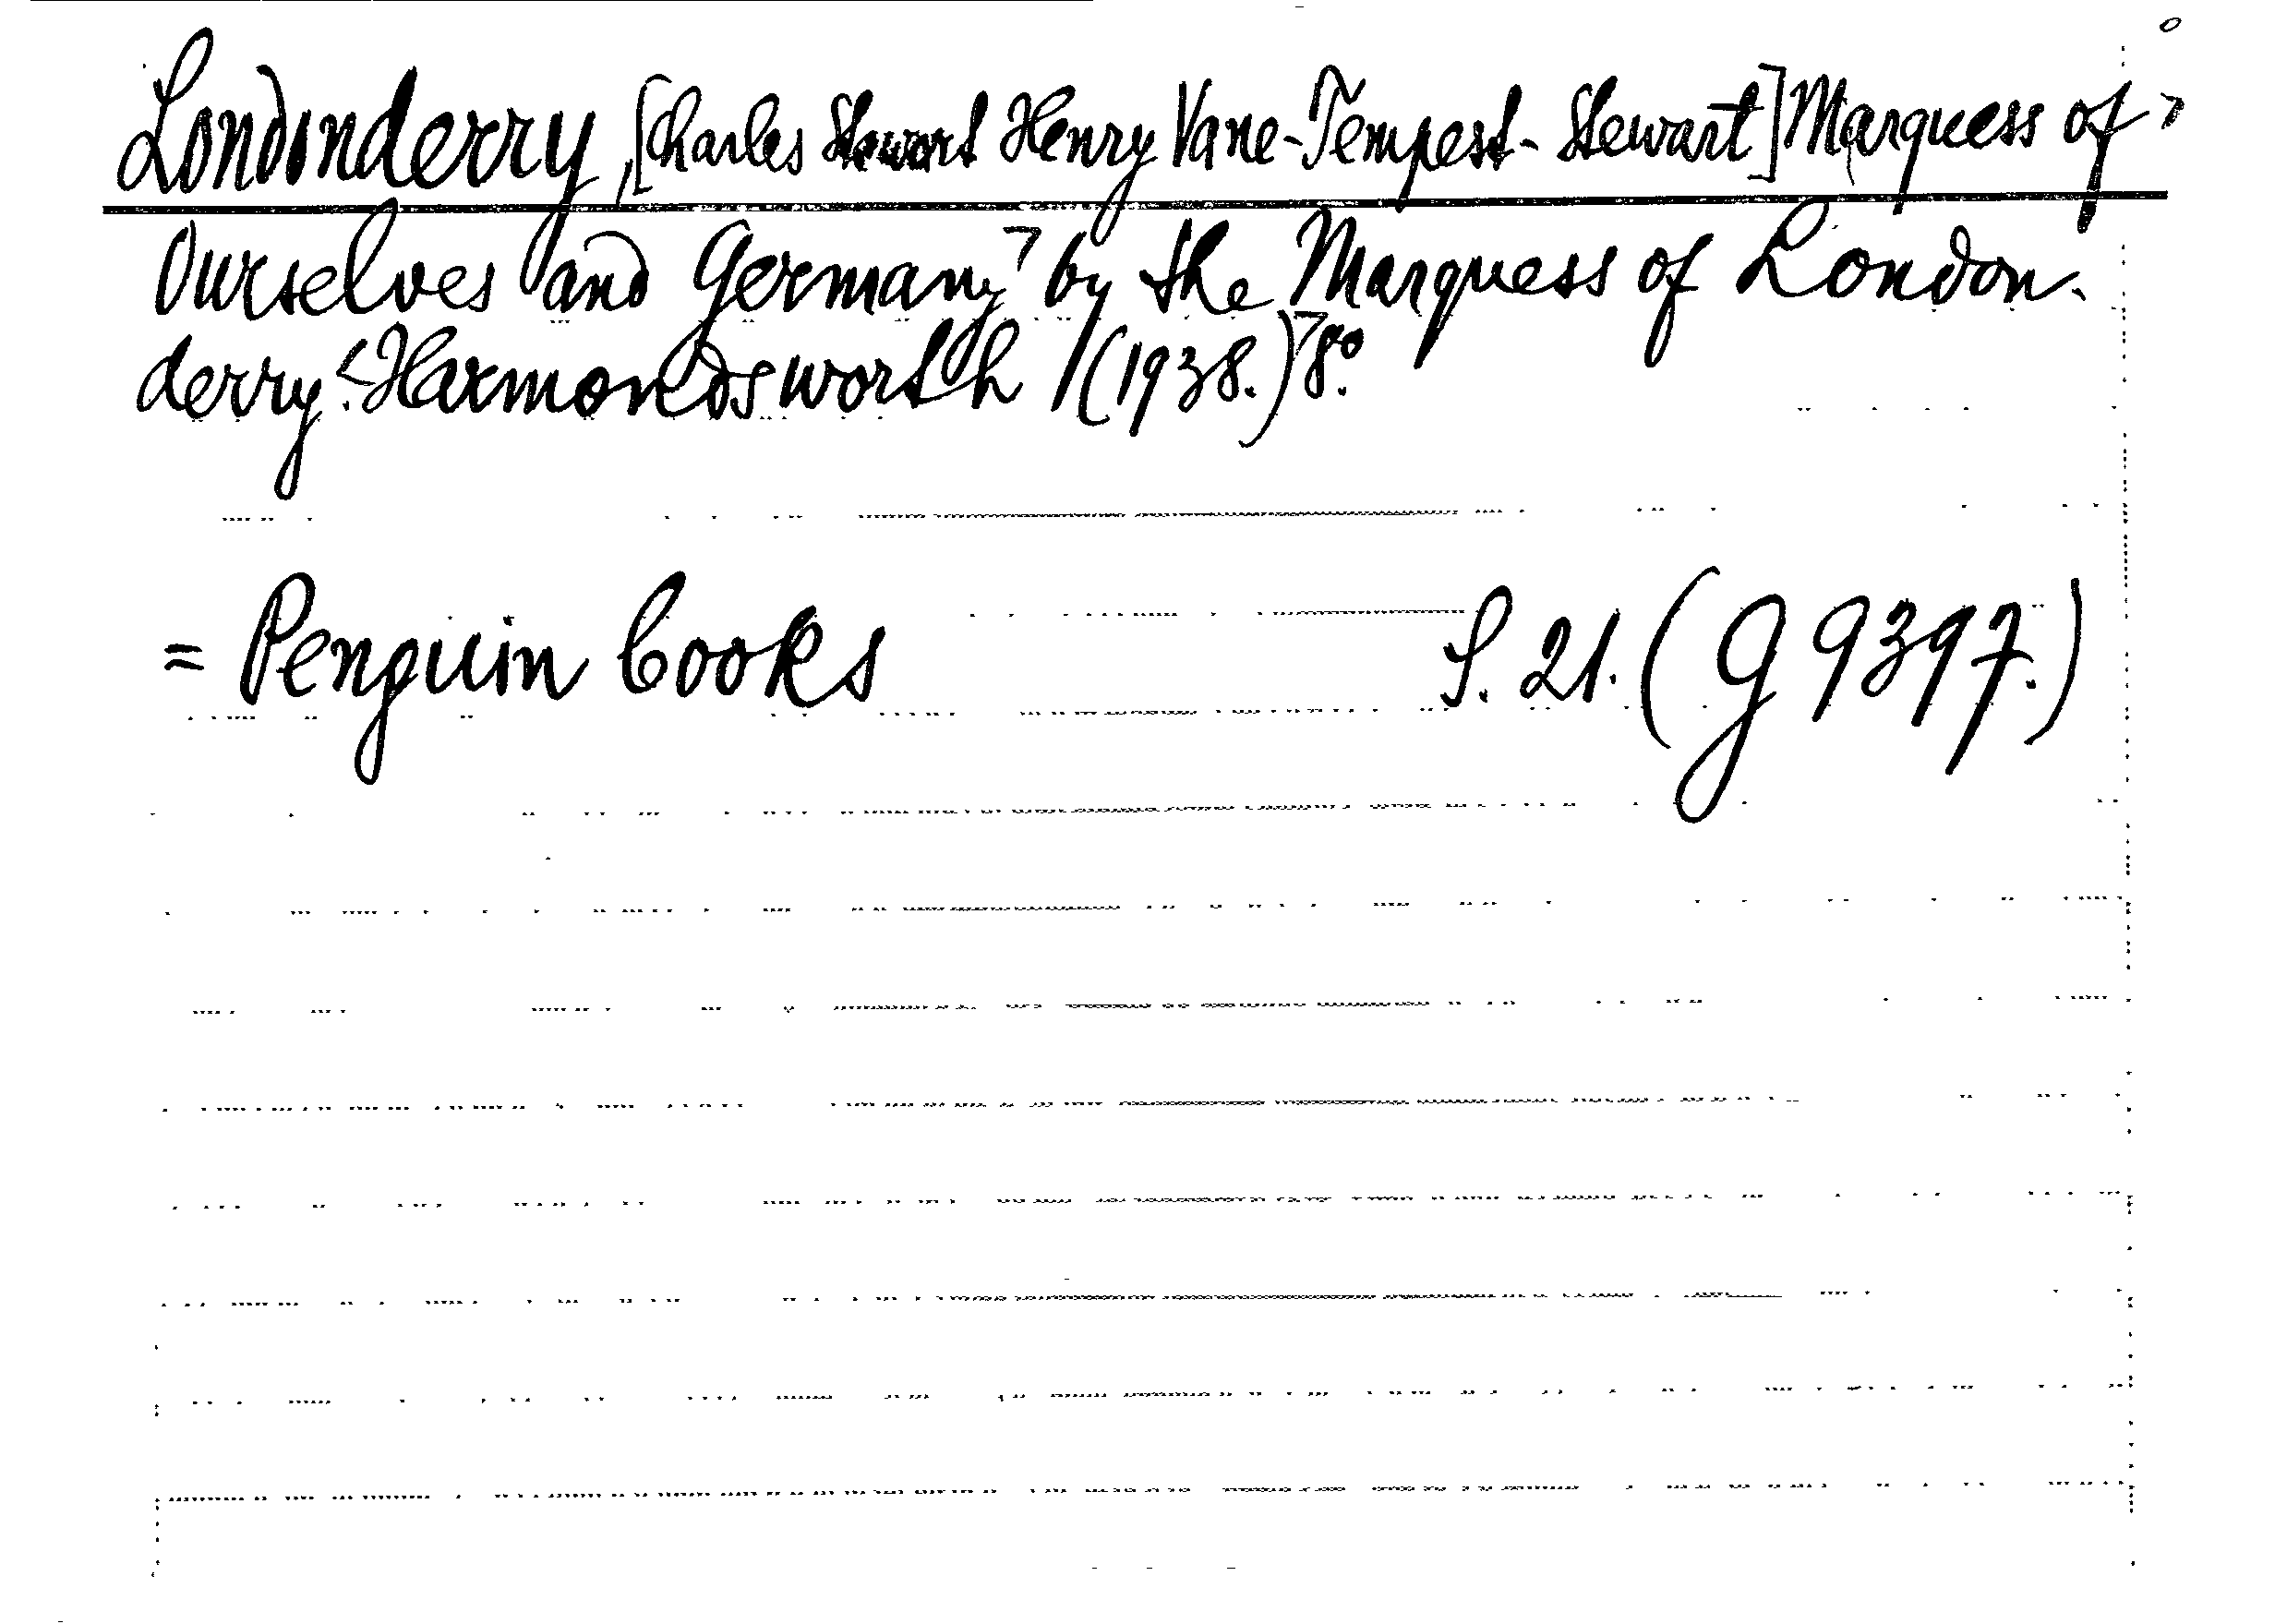 Londonderry, [Charles Stewart Henry Vane-Tempest-Stewart] Marquess of
Ourselves and Germany by the Marquess of London-
derry. Harmondsworth (1938.) 8°.
= Penguin books S. 21. (G 9397.)